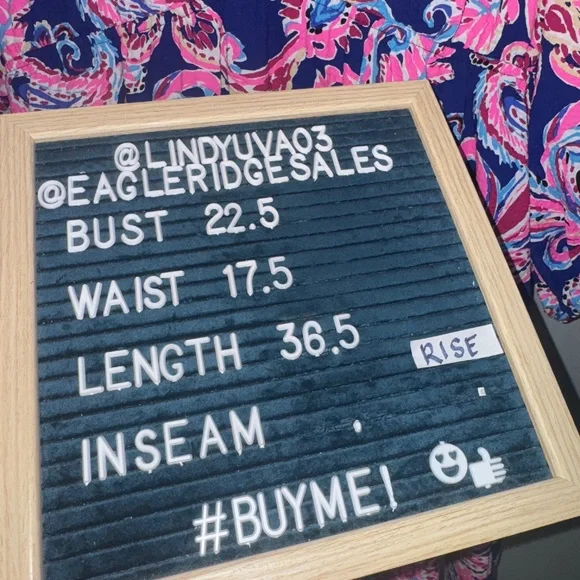 @LINDYUVA03
@EAGLERIDGESALES
BUST 22.5
WAIST 17.5
LENGTH 36.5
RISE
INSEAM .
#BUYME!